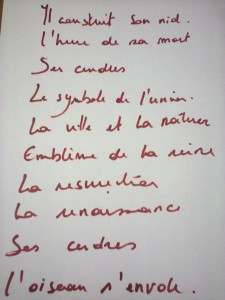 Il construit son nid.
l'heure de sa mort
Ses cendres
Le symbole de l'union.
La ville et la nature
Emblème de la reine
La résurrection
La renaissance
Ses cendres
l'oiseau s'envole.